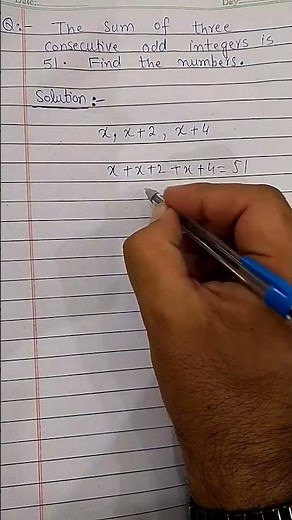 Date: Day:
Q:- The sum of three
consecutive odd integers is
51. Find the numbers.
Solution:-
x, x+2, x+4
x+x+2+x+4=51